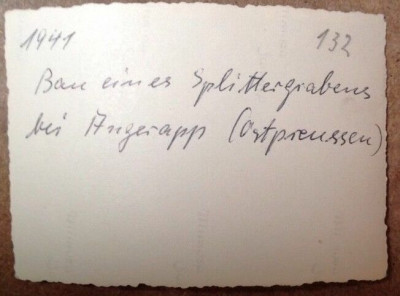 1941 132
Bau eines Splittergrabens
bei Angerapp (Ostpreussen)